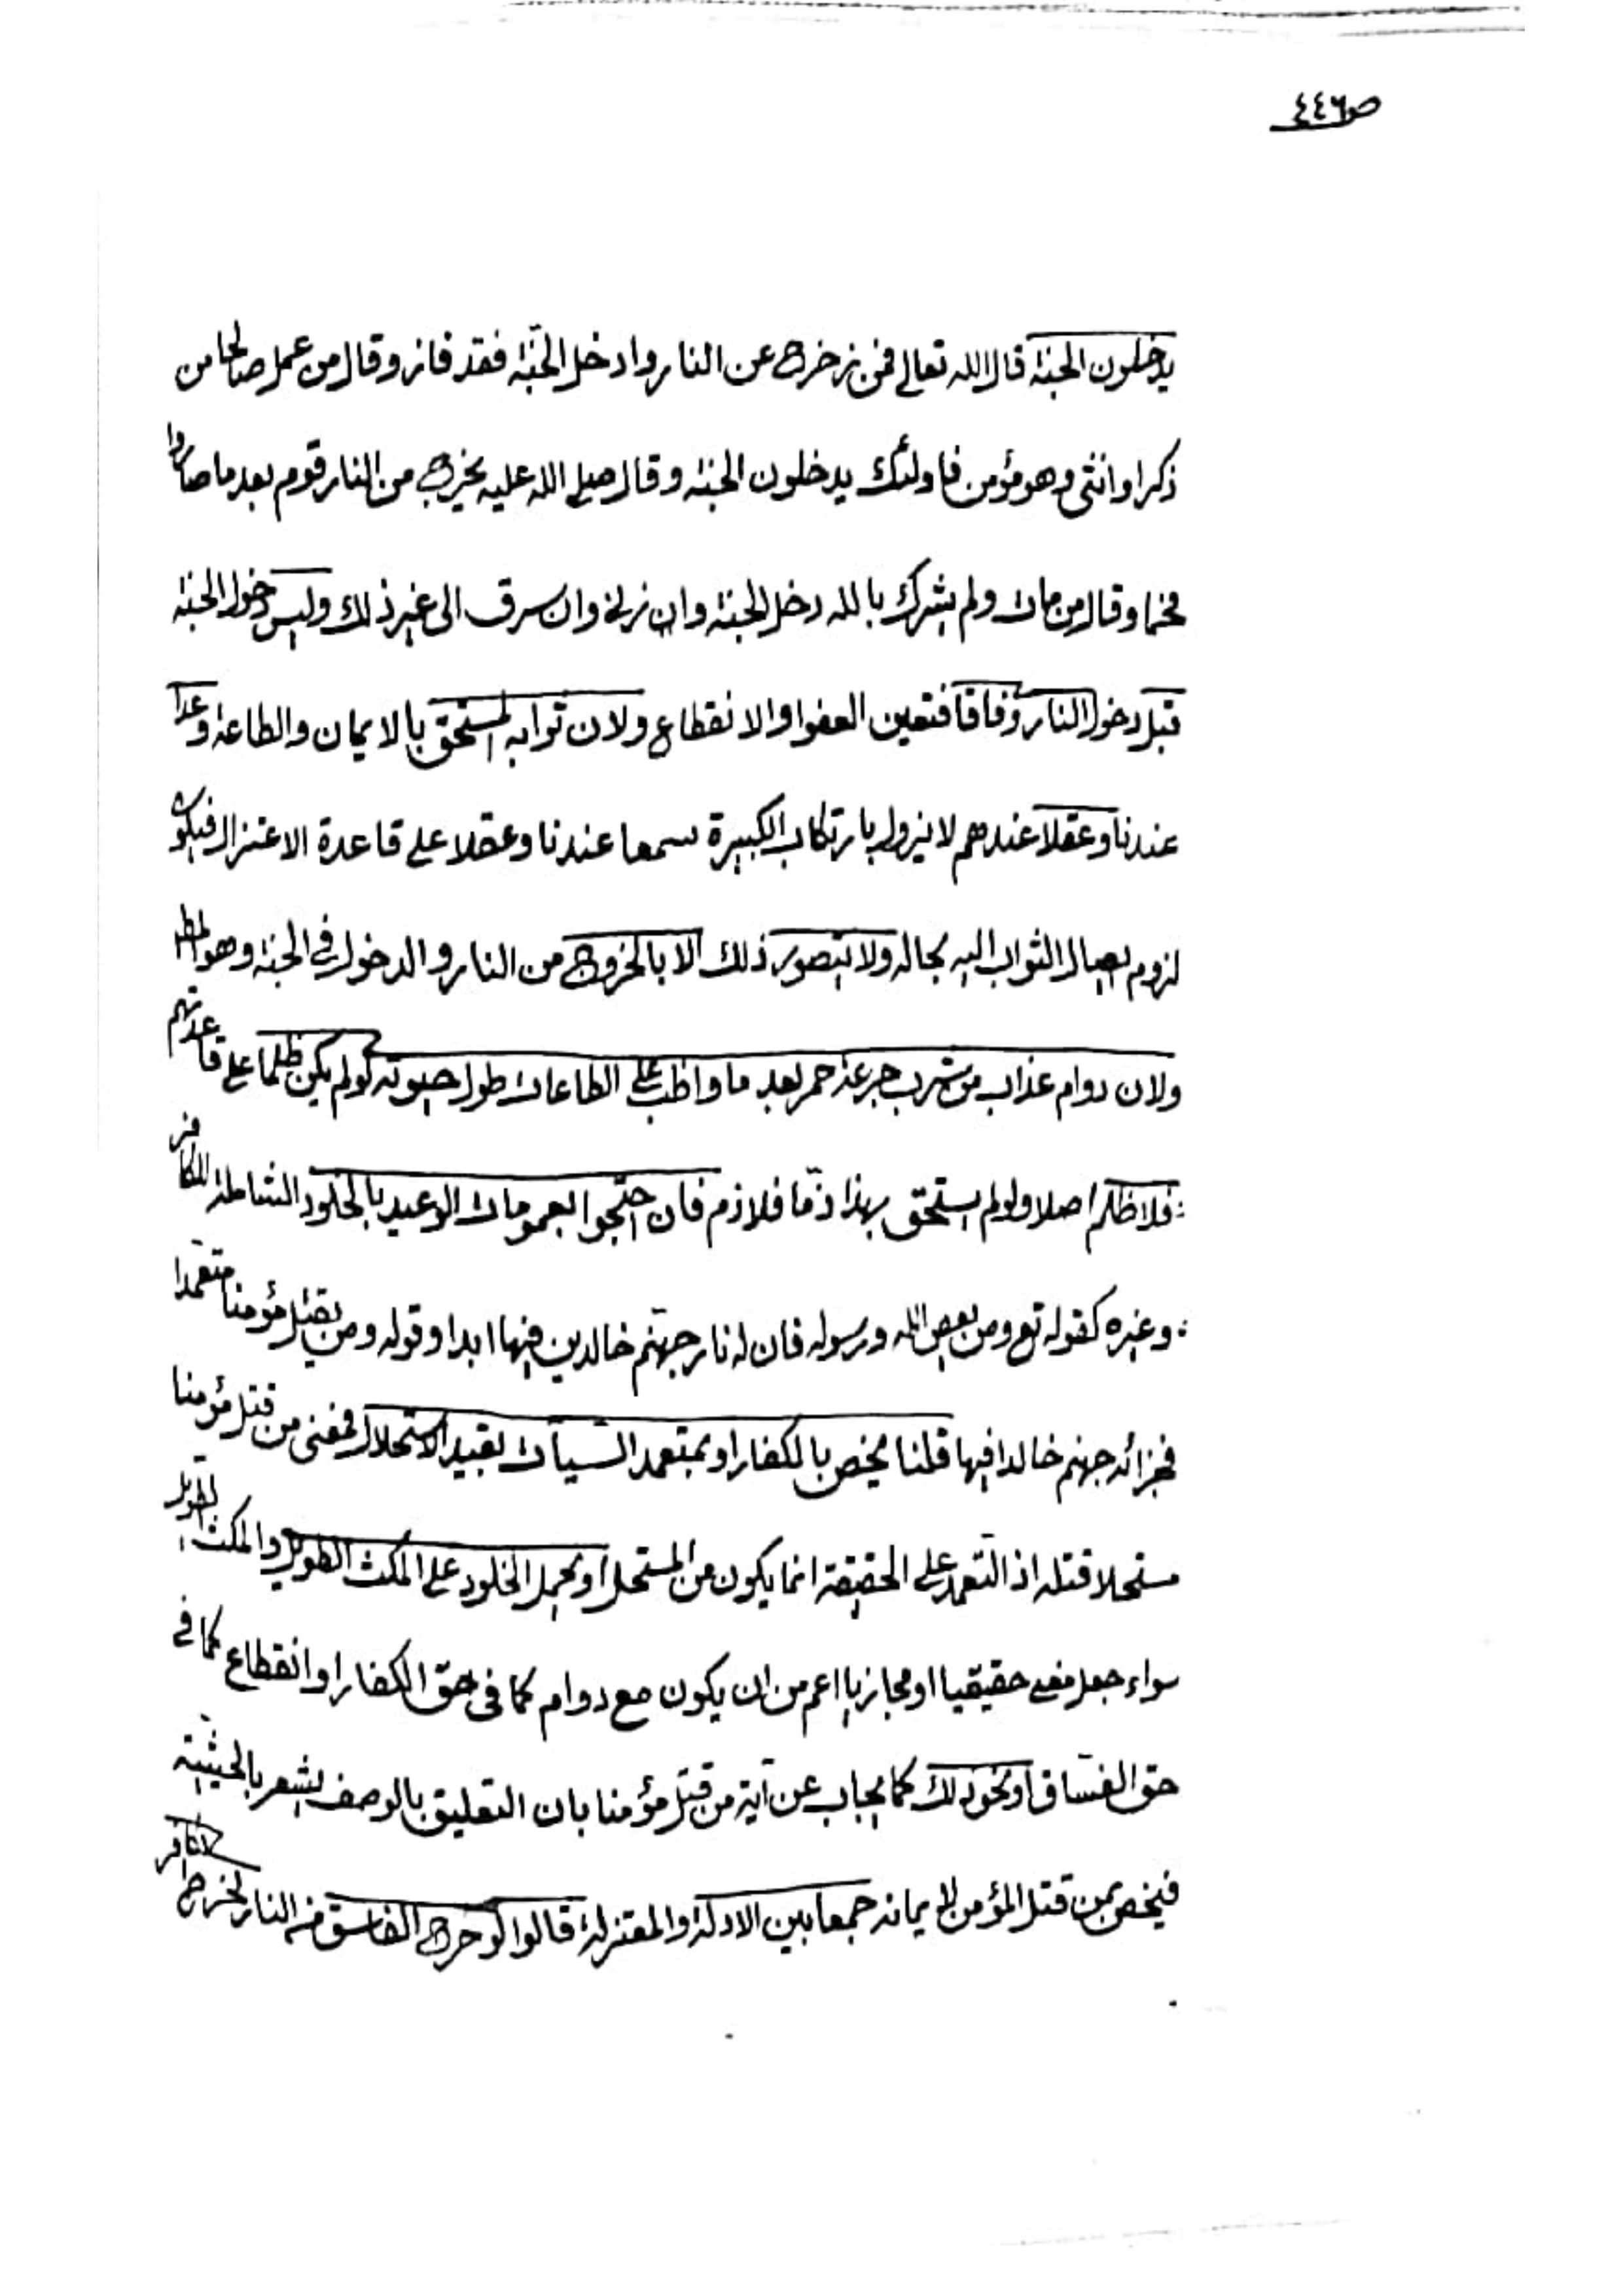 ص٤٤٦
يدخلون الجنة قال الله تعالى فمن زحزح عن النار وادخل الجنّة فقد فاز وقال من عمل صالحا من
ذكرا وانثى وهو مؤمن فاولئك يدخلون الجنة وقال صلى الله عليه يخرج من النار قوم بعد ما صاروا
فحما وقال من مات ولم يشرك بالله دخل الجنة وان زنى وان سرق الى غير ذلك وليس دخول الجنة
قبل دخول النار وفاقا فتعين العفو اوالانقطاع ولان ثوابه المستحق بالايمان والطاعة وعدا
عندنا وعقلا عندهم لا يزول بارتكاب الكبيرة سمعا عندنا وعقلا على قاعدة الاعتزال فيكون
لزوم ايصال الثواب اليه بحاله ولا يتصور ذلك الا بالخروج من النار والدخول في الجنة وهو المط
ولان دوام عذاب من شرب جرعة خمر بعد ما واظب على الطاعات طول حيوته لو لم يكن ظلما على قاعدتهم
فلا ظلم اصلا ولو لم يستحق بهذا ذمّا فلا ذم فان احتجوا بعمومات الوعيد بالخلود الشاملة للكافر
وغيره كقوله تع ومن يعص الله ورسوله فان له نار جهنّم خالدين فيها ابدا وقوله ومن يقتل مؤمنا متعمّدا
فجزائه جهنم خالدا فيها قلنا يخص بالكفار او بمتعمد السّيآت بقيد الاستحلال فمعنى من قتل مؤمنا
مستحلا قتله اذ التّعمد على الحقيقة انما يكون من المستحل او يحمل الخلود على المكث الطويل والمكث الطويل
سواء جعل معنى حقيقيا او مجازيا اعم من ان يكون مع دوام كما فى حق الكفار او انقطاع كما في
حق الفسّاق او نحو ذلك كما يجاب عن آية من قتل مؤمنا بان التعليق بالوصف يشعر بالحيثيّة
فيخص بمن قتل المؤمن لايمانه جمعا بين الادلة والمعتزلة قالوا لو خرج الفاسق من النار لخرج الكافر